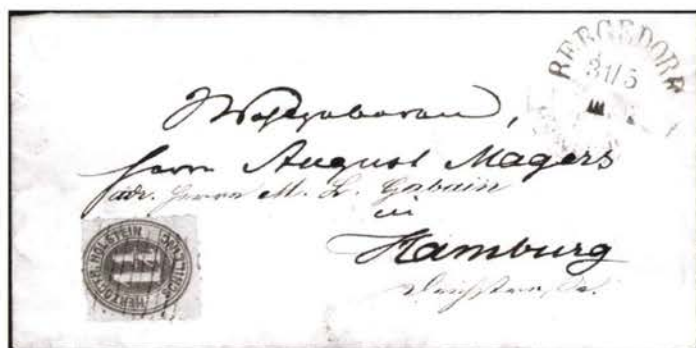 BERGEDORF
31/5
Wohlgeboren,
Herrn August Magers
adr. Herrn M. L. Gabain
in
Hamburg
HERZOGTH. HOLSTEIN
SCHILLING